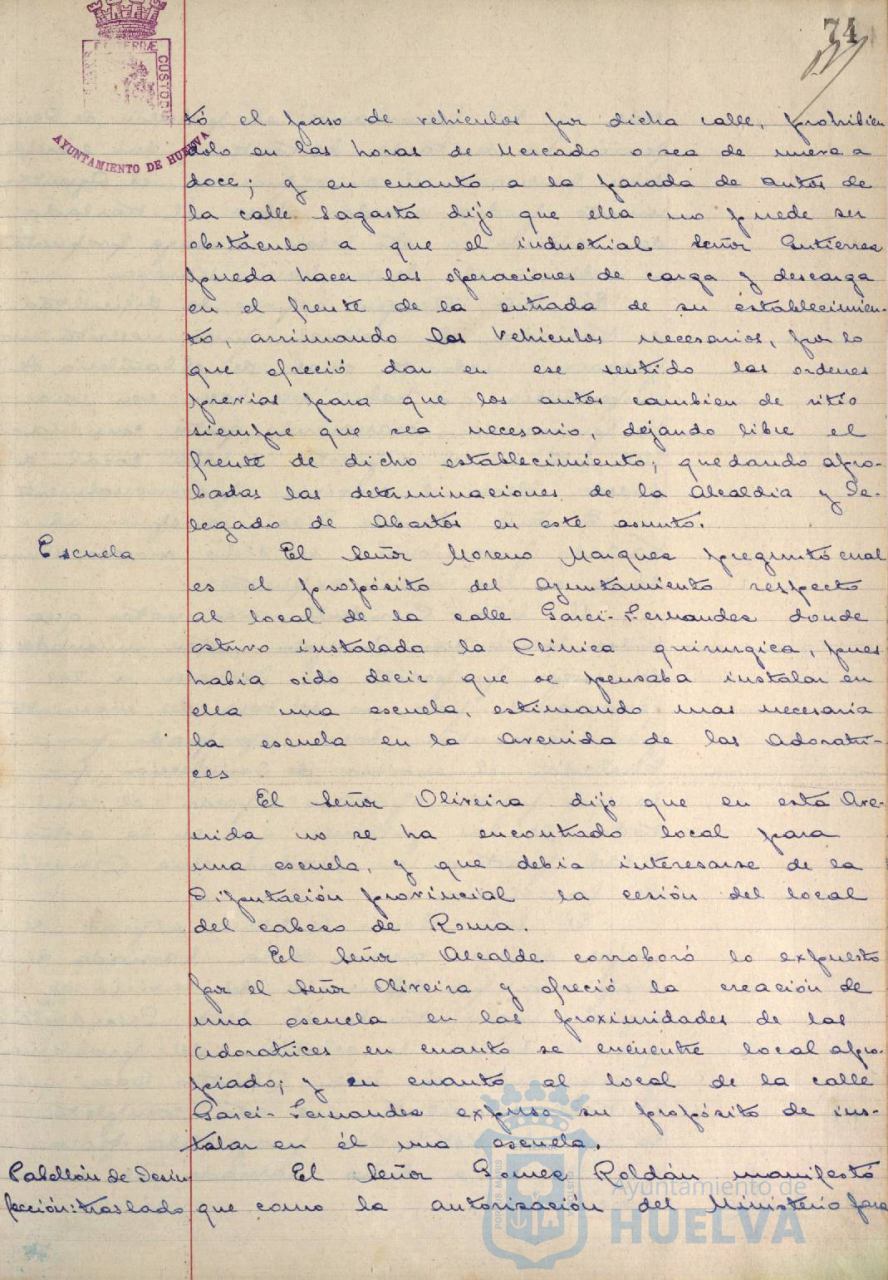 74
CUSTODIA
AYUNTAMIENTO DE HUELVA
tó el paso de vehículos por dicha calle, prohibien
dolo en las horas de Mercado o sea de nueve a
doce; y en cuanto a la parada de autos de
la calle Sagasta dijo que ella no puede ser
obstáculo a que el industrial Señor Gutierrez
pueda hacer las operaciones de carga y descarga
en el frente de la entrada de su establecimien-
to, arrimando los Vehículos necesarios, por lo
que ofreció dar en ese sentido las ordenes
previas para que los autos cambien de sitio
siempre que sea necesario, dejando libre el
frente de dicho establecimiento; quedando apro-
badas las determinaciones de la Alcaldia y De-
legado de Abastos en este asunto.
Escuela
El Señor Moreno Marquez preguntó cual
es el propósito del Ayuntamiento respecto
al local de la calle Garci-Fernandez donde
estuvo instalada la Clinica quirurgica, pues
había oido decir que se pensaba instalar en
ella una escuela, estimando mas necesaria
la escuela en la Avenida de las Adoratri-
ces
El Señor Oliveira dijo que en esta Ave-
nida no se ha encontrado local para
una escuela, y que debia interesarse de la
Diputación provincial la cesión del local
del cabezo de Roma.
El Señor Alcalde corroboró lo expuesto
por el Señor Oliveira y ofreció la creación de
una escuela en las proximidades de las
Adoratrices en cuanto se encuentre local apro-
piado; y en cuanto al local de la calle
Garci-Fernandez expuso su propósito de ins-
talar en él una escuela.
Pabellón de Desin
fección: traslado
El Señor Gomez Roldán manifestó
que como la autorización del Ministerio para
Ayuntamiento de
HUELVA